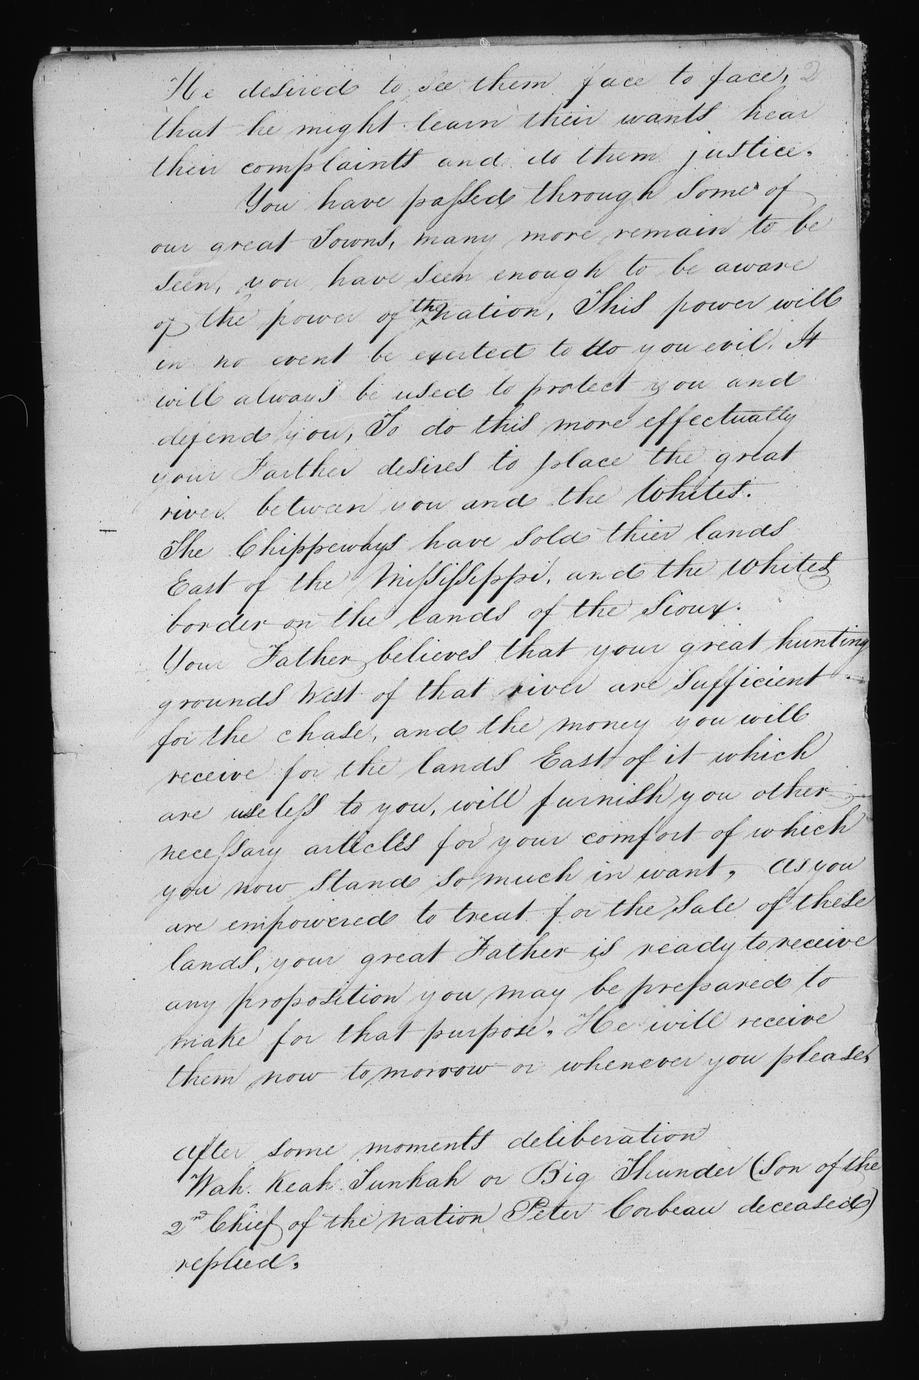 2
He desired to see them face to face,
that he might learn their wants hear
their complaints and do them justice.
You have passed through some of
our great Towns, many more remain to be
seen, you have seen enough to be aware
of the power of the nation, This power will
in no event be exerted to do you evil. It
will always be used to protect you and
defend you, To do this more effectually
your Farther desires to place the great
river between you and the Whites.
The Chippeways have sold thier lands
East of the Mississeppi, and the Whites
border on the lands of the Sioux.
Your Father believes that your great hunting
grounds West of that river are sufficient
for the chase, and the money you will
receive for the lands East of it which
are useless to you, will furnish you other
necessary articles for your comfort of which
you now stand so much in want, As you
are empowered to treat for the Sale of these
lands, your great Father is ready to receive
any proposition you may be prepared to
make for that purpose. He will receive
them now tomorrow or whenever you please,
After some moments deliberation
Wah. Keah. Tunkah or Big Thunder (Son of the
2nd Chief of the nation Peter Corbeau deceased)
replied.